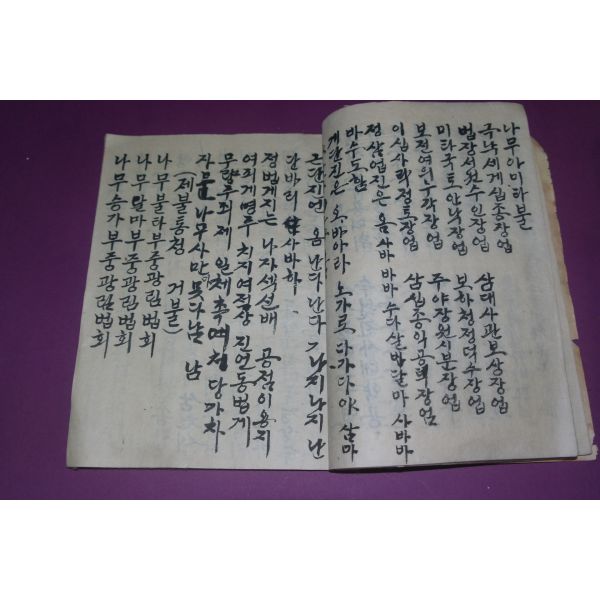 나무아미타불
극낙세게십종장엄
법장서원수인장엄 삼대사관보상장엄
미타국토안낙장엄 보하청정덕수장엄
보전여의누각장엄 주야장원시분장엄
이십사락정토장엄 삼십종익공덕장엄
정삼업진은 옴 사바 바바 수다살바 달마 사바바
바수도함
개단진은 옴 바아라 노가로 다가다야 삼마
근단진언 옴 난다난다 나지나지 난
다바리 사바하
정법게지는 나자색선배 공점이용지
여피게명루 치지여정상 진언동법게
무량중죄제 일체촉예처 당가차
자문 나무사만못다남 남
(제불통청 거불)
나무불타부중광림법회
나무달마부중광림법회
나무승가부중광림법회